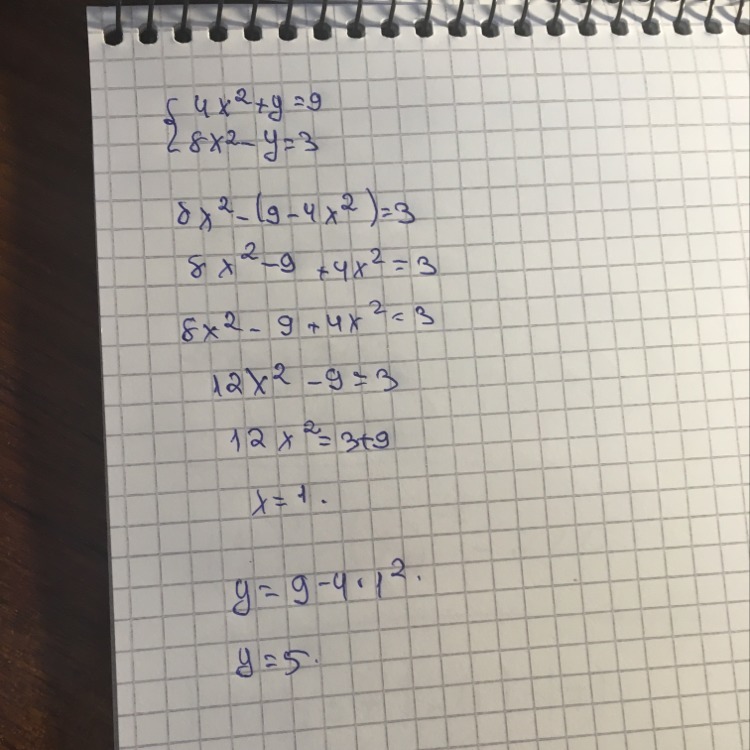 { 4x² + y = 9
8x² - y = 3
8x² - (9 - 4x²) = 3
8x² - 9 + 4x² = 3
8x² - 9 + 4x² = 3
12x² - 9 = 3
12x² = 3+9
x = 1.
y = 9 - 4 · 1².
y = 5.